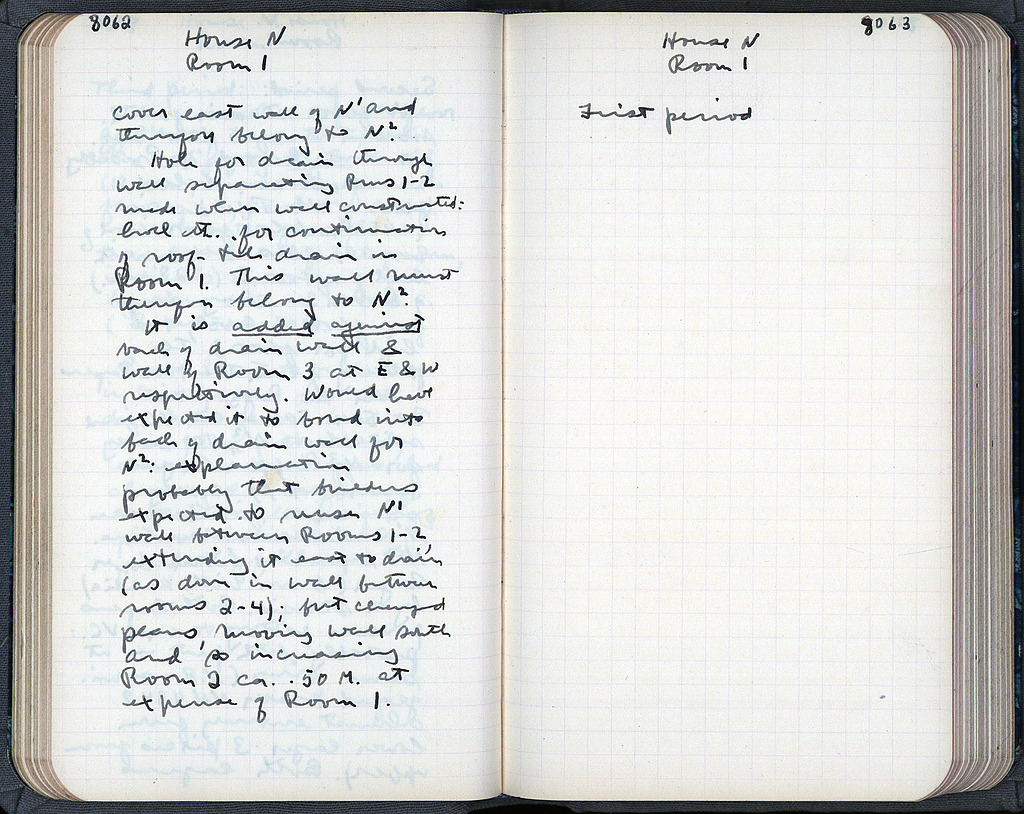 8062
House N
Room 1
cover east wall of N¹ and
therefore belong to N².
Hole for drain through
wall separating Rms 1-2
made when wall constructed:
level etc. for continuation
of roof-tile drain in
Room 1. This wall must
therefore belong to N².
It is added against
back of drain wall &
wall of Room 3 at E & W
respectively. Would have
expected it to bond into
back of drain wall for
N²: explanation
probably that builders
expected to reuse N¹
wall between Rooms 1-2,
extending it east to drain
(as done in wall between
rooms 2-4); but changed
plans, moving wall south
and so increasing
Room 2 ca. .50 M. at
expense of Room 1.
8063
House N
Room 1
First period